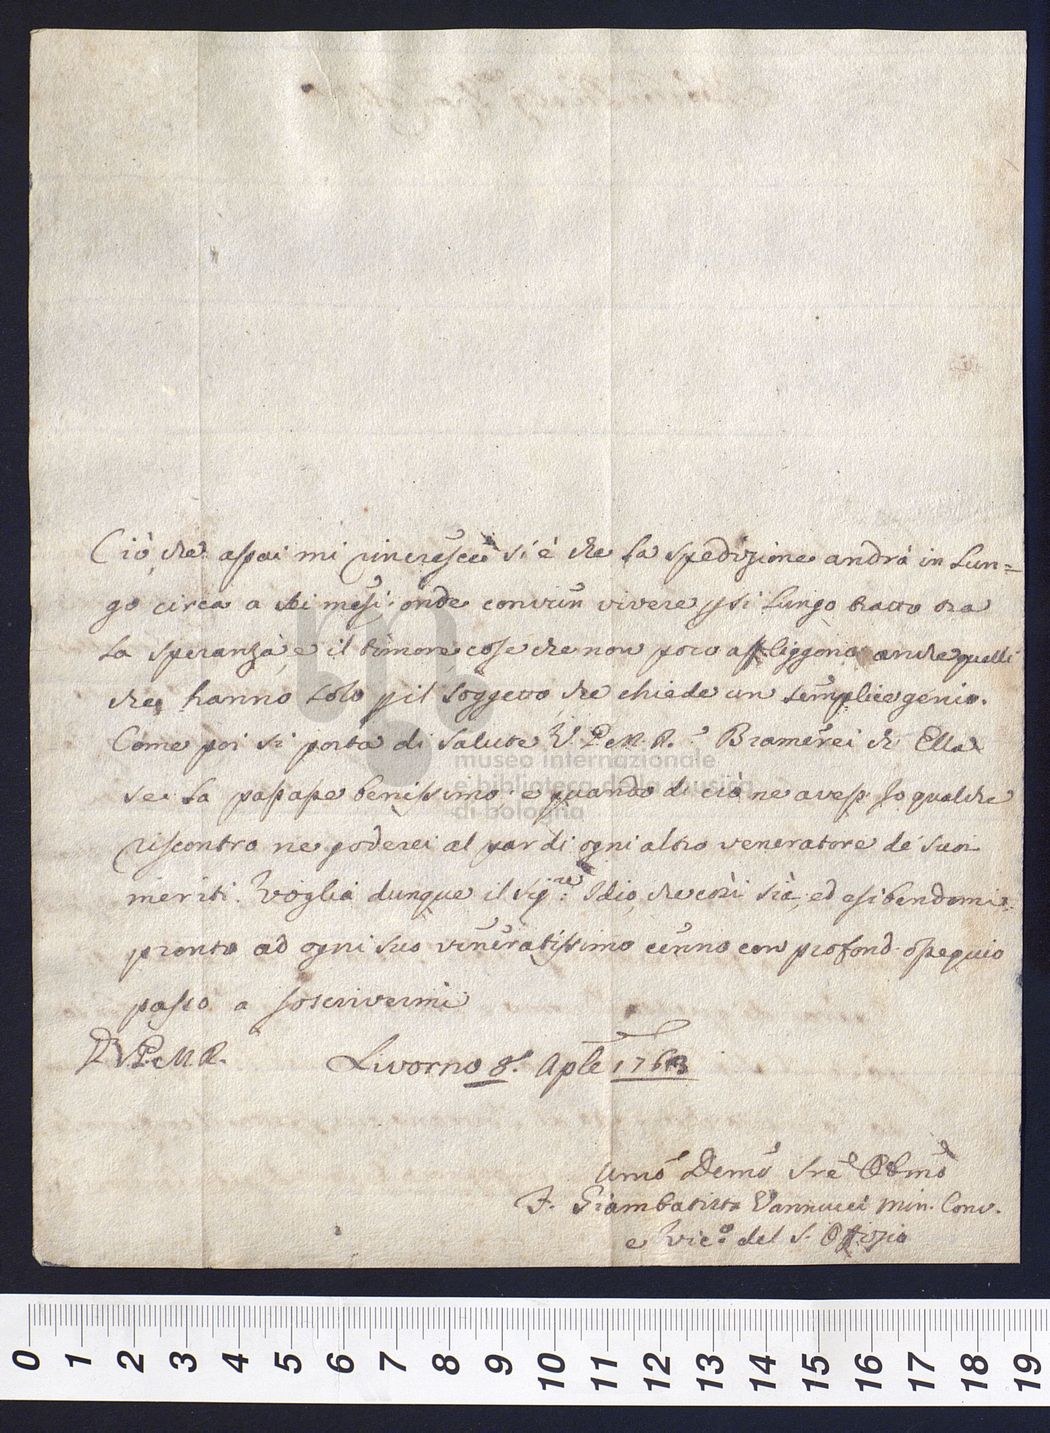 Ciò, che assai mi rincresce si è che la spedizione andrà in lun=
go circa a sei mesi: onde convien vivere p sì lungo tratto tra
la speranza, e il timore cose che non poco affliggono anche quelli
che hanno solo p il soggetto, che chiede un semplice genio.
Come poi si porta di salute V. P. M. R.? Bramerei ch Ella
se la passasse benissimo e quando di ciò ne avessi qualche
riscontro ne goderei al par di ogni altro veneratore de suoi
meriti. Voglia dunque il Sig.re Idio, che così sia, ed esibendomi
pronto ad ogni suo veneratissimo cenno con profond. ossequio
passo a soscrivermi
D. V. P. M. R.
Livorno 8. Aple 1763
Umo Demo Sre Obmo
F. Giambatista Vannucci Min. Conv.
e Vic.o del S. Offizio
museo internazionale
e biblioteca della musica
di bologna
0 1 2 3 4 5 6 7 8 9 10 11 12 13 14 15 16 17 18 19